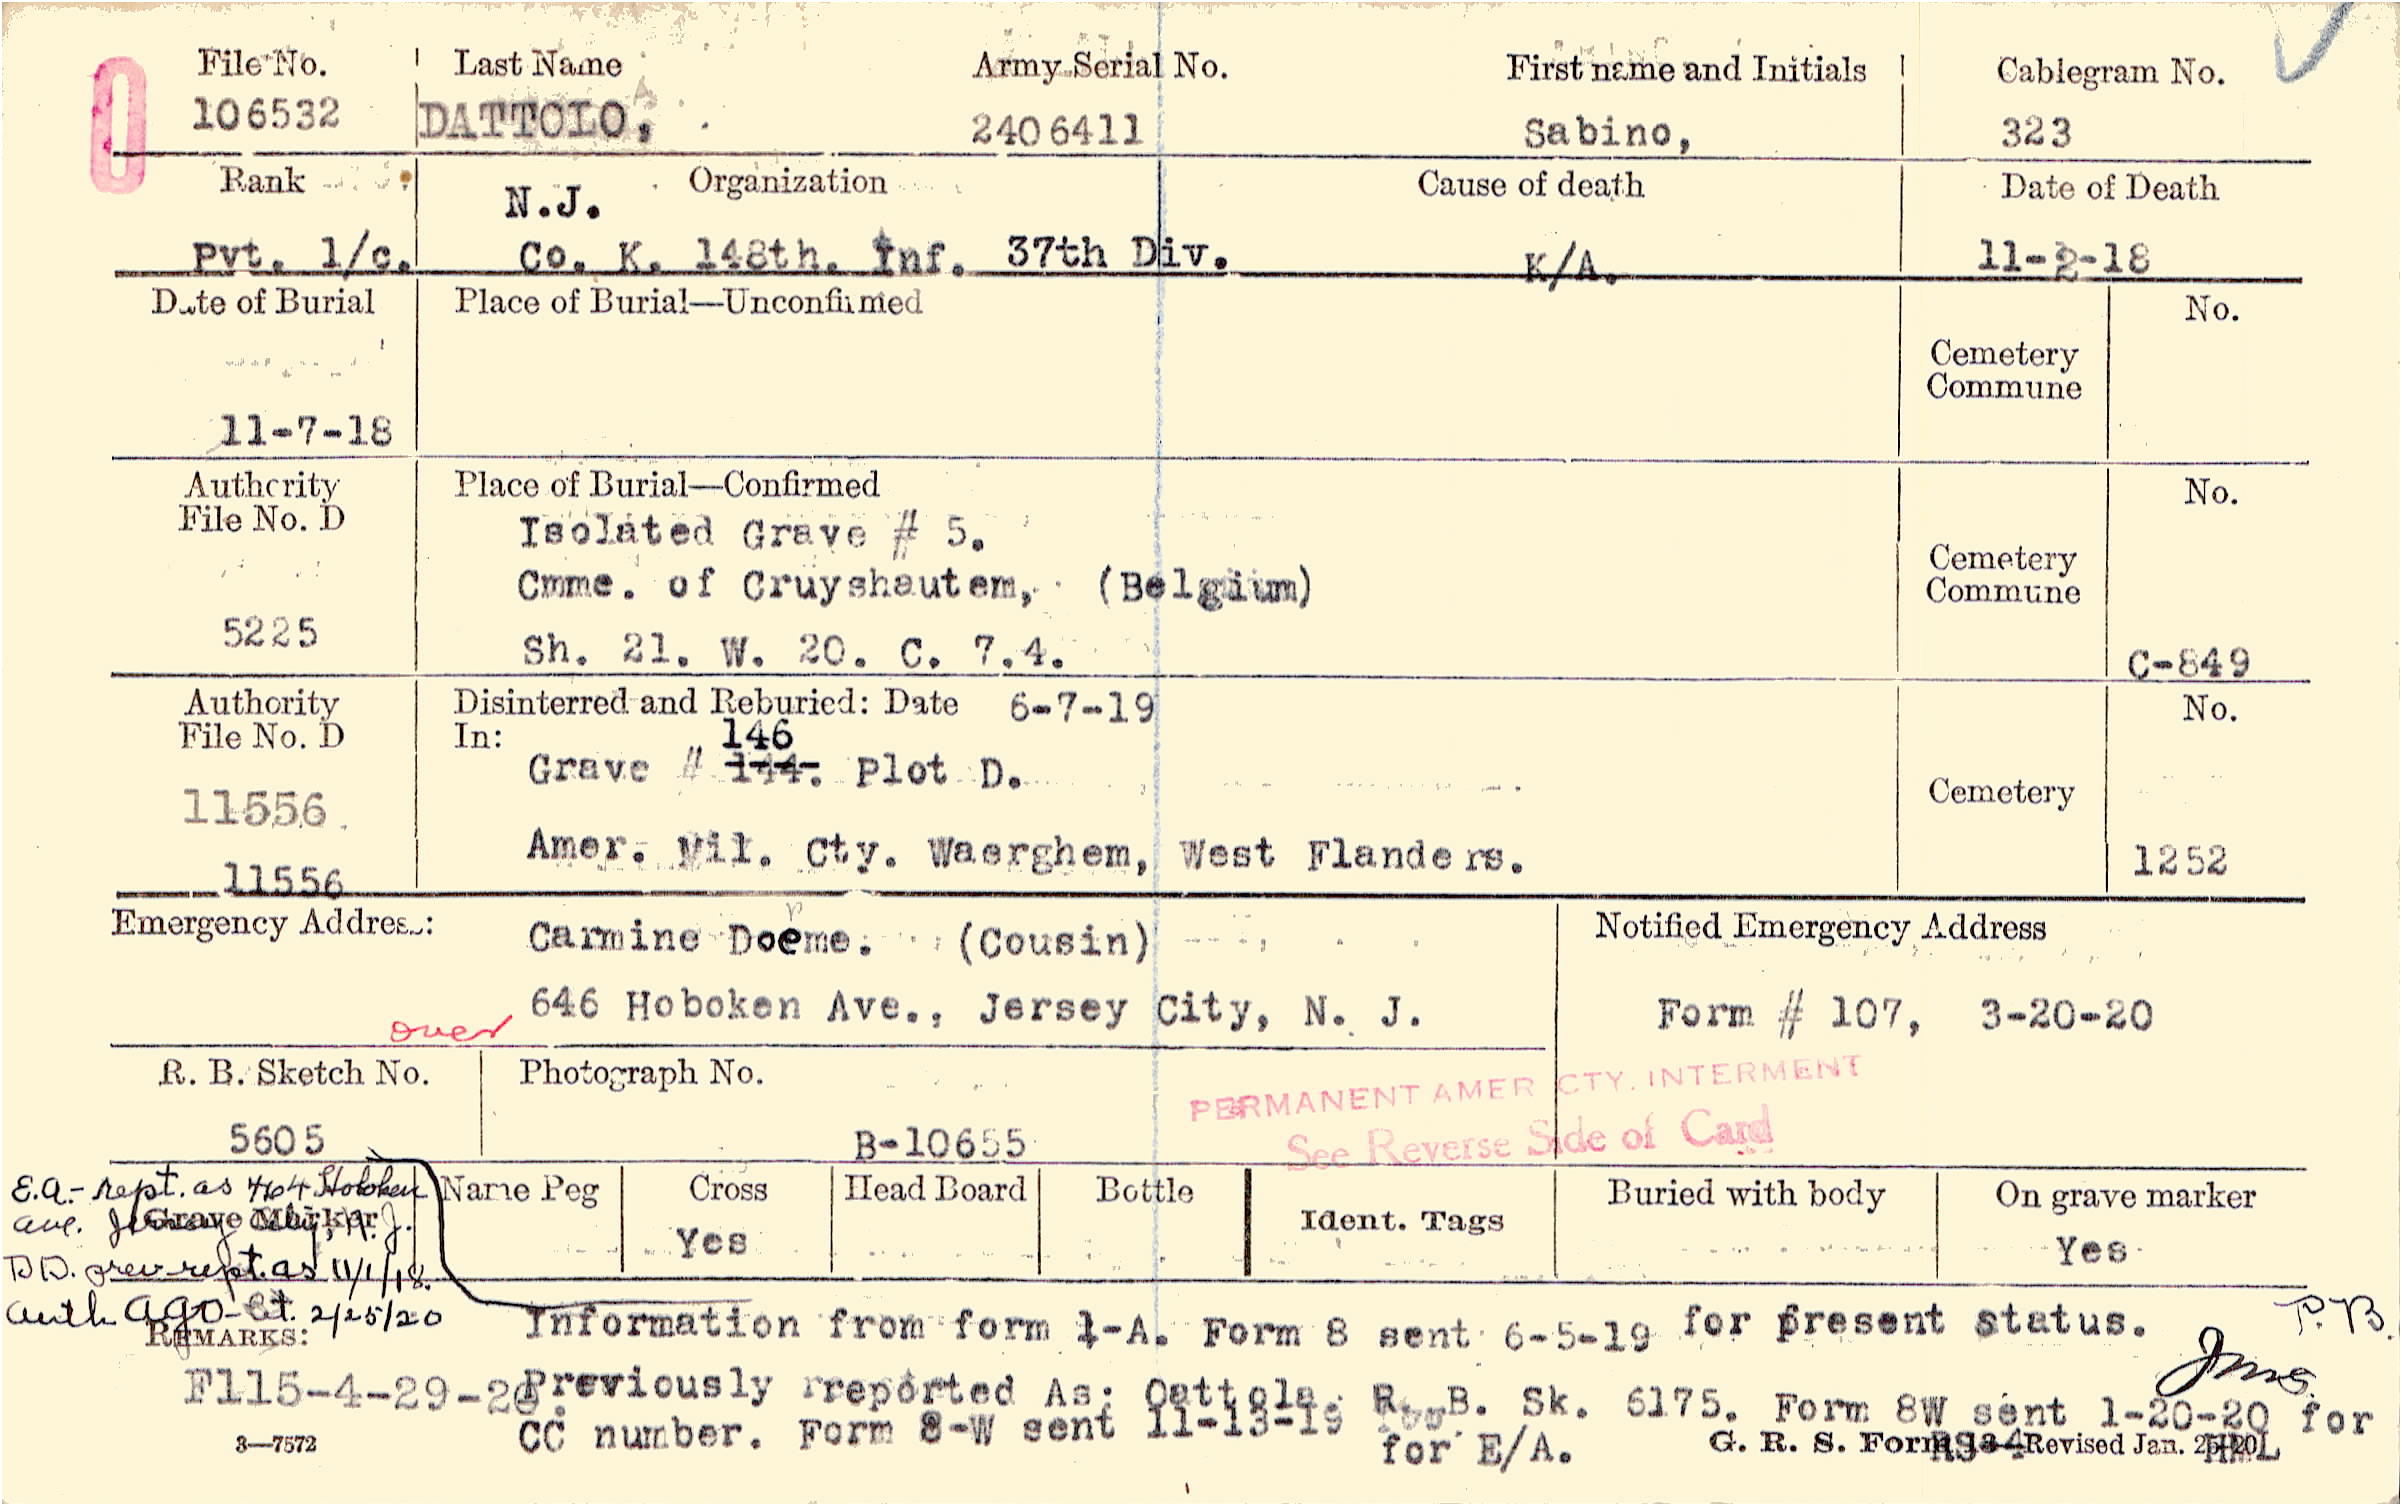 File No. Last Name Army Serial No. First name and Initials Cablegram No.
106532 DATTOLO, 2406411 Sabino, 323
Rank N.J. Organization Cause of death Date of Death
Pvt. 1/c. Co. K. 148th. Inf. 37th Div. K/A. 11-2-18
Date of Burial Place of Burial—Unconfirmed No.
Cemetery
Commune
11-7-18
Authority Place of Burial—Confirmed No.
File No. D
Isolated Grave # 5.
Cemetery
Cmme. of Cruyshautem, (Belgium)
Commune
5225
Sh. 21. W. 20. C. 7.4.
C-849
Authority Disinterred and Reburied: Date 6-7-19 No.
File No. D In: 146
Grave # 144. Plot D.
11556 Cemetery
Amer. Mil. Cty. Waerghem, West Flanders. 1252
11556
Emergency Address: Carmine Doeme. (Cousin) Notified Emergency Address
646 Hoboken Ave., Jersey City, N. J. Form # 107, 3-20-20
over
R. B. Sketch No. Photograph No.
PERMANENT AMER CTY. INTERMENT
5605 B-10655 See Reverse Side of Card
E.A.- rept. as 464 Hoboken
Ave. Jersey City, N.J.
Grave Marker Name Peg Cross Head Board Bottle Ident. Tags Buried with body On grave marker
Yes Yes
DD. prev rept. as 11/1/18.
Auth AGO 2/25/20
REMARKS: Information from form 1-A. Form 8 sent 6-5-19 for present status. P.B.
F115-4-29-20. Previously reported As: Oattola. R. B. Sk. 6175. Form 8W sent 1-20-20 for
CC number. Form 8-W sent 11-13-19 for E/A.
3—7572 G. R. S. Form Revised Jan. HML